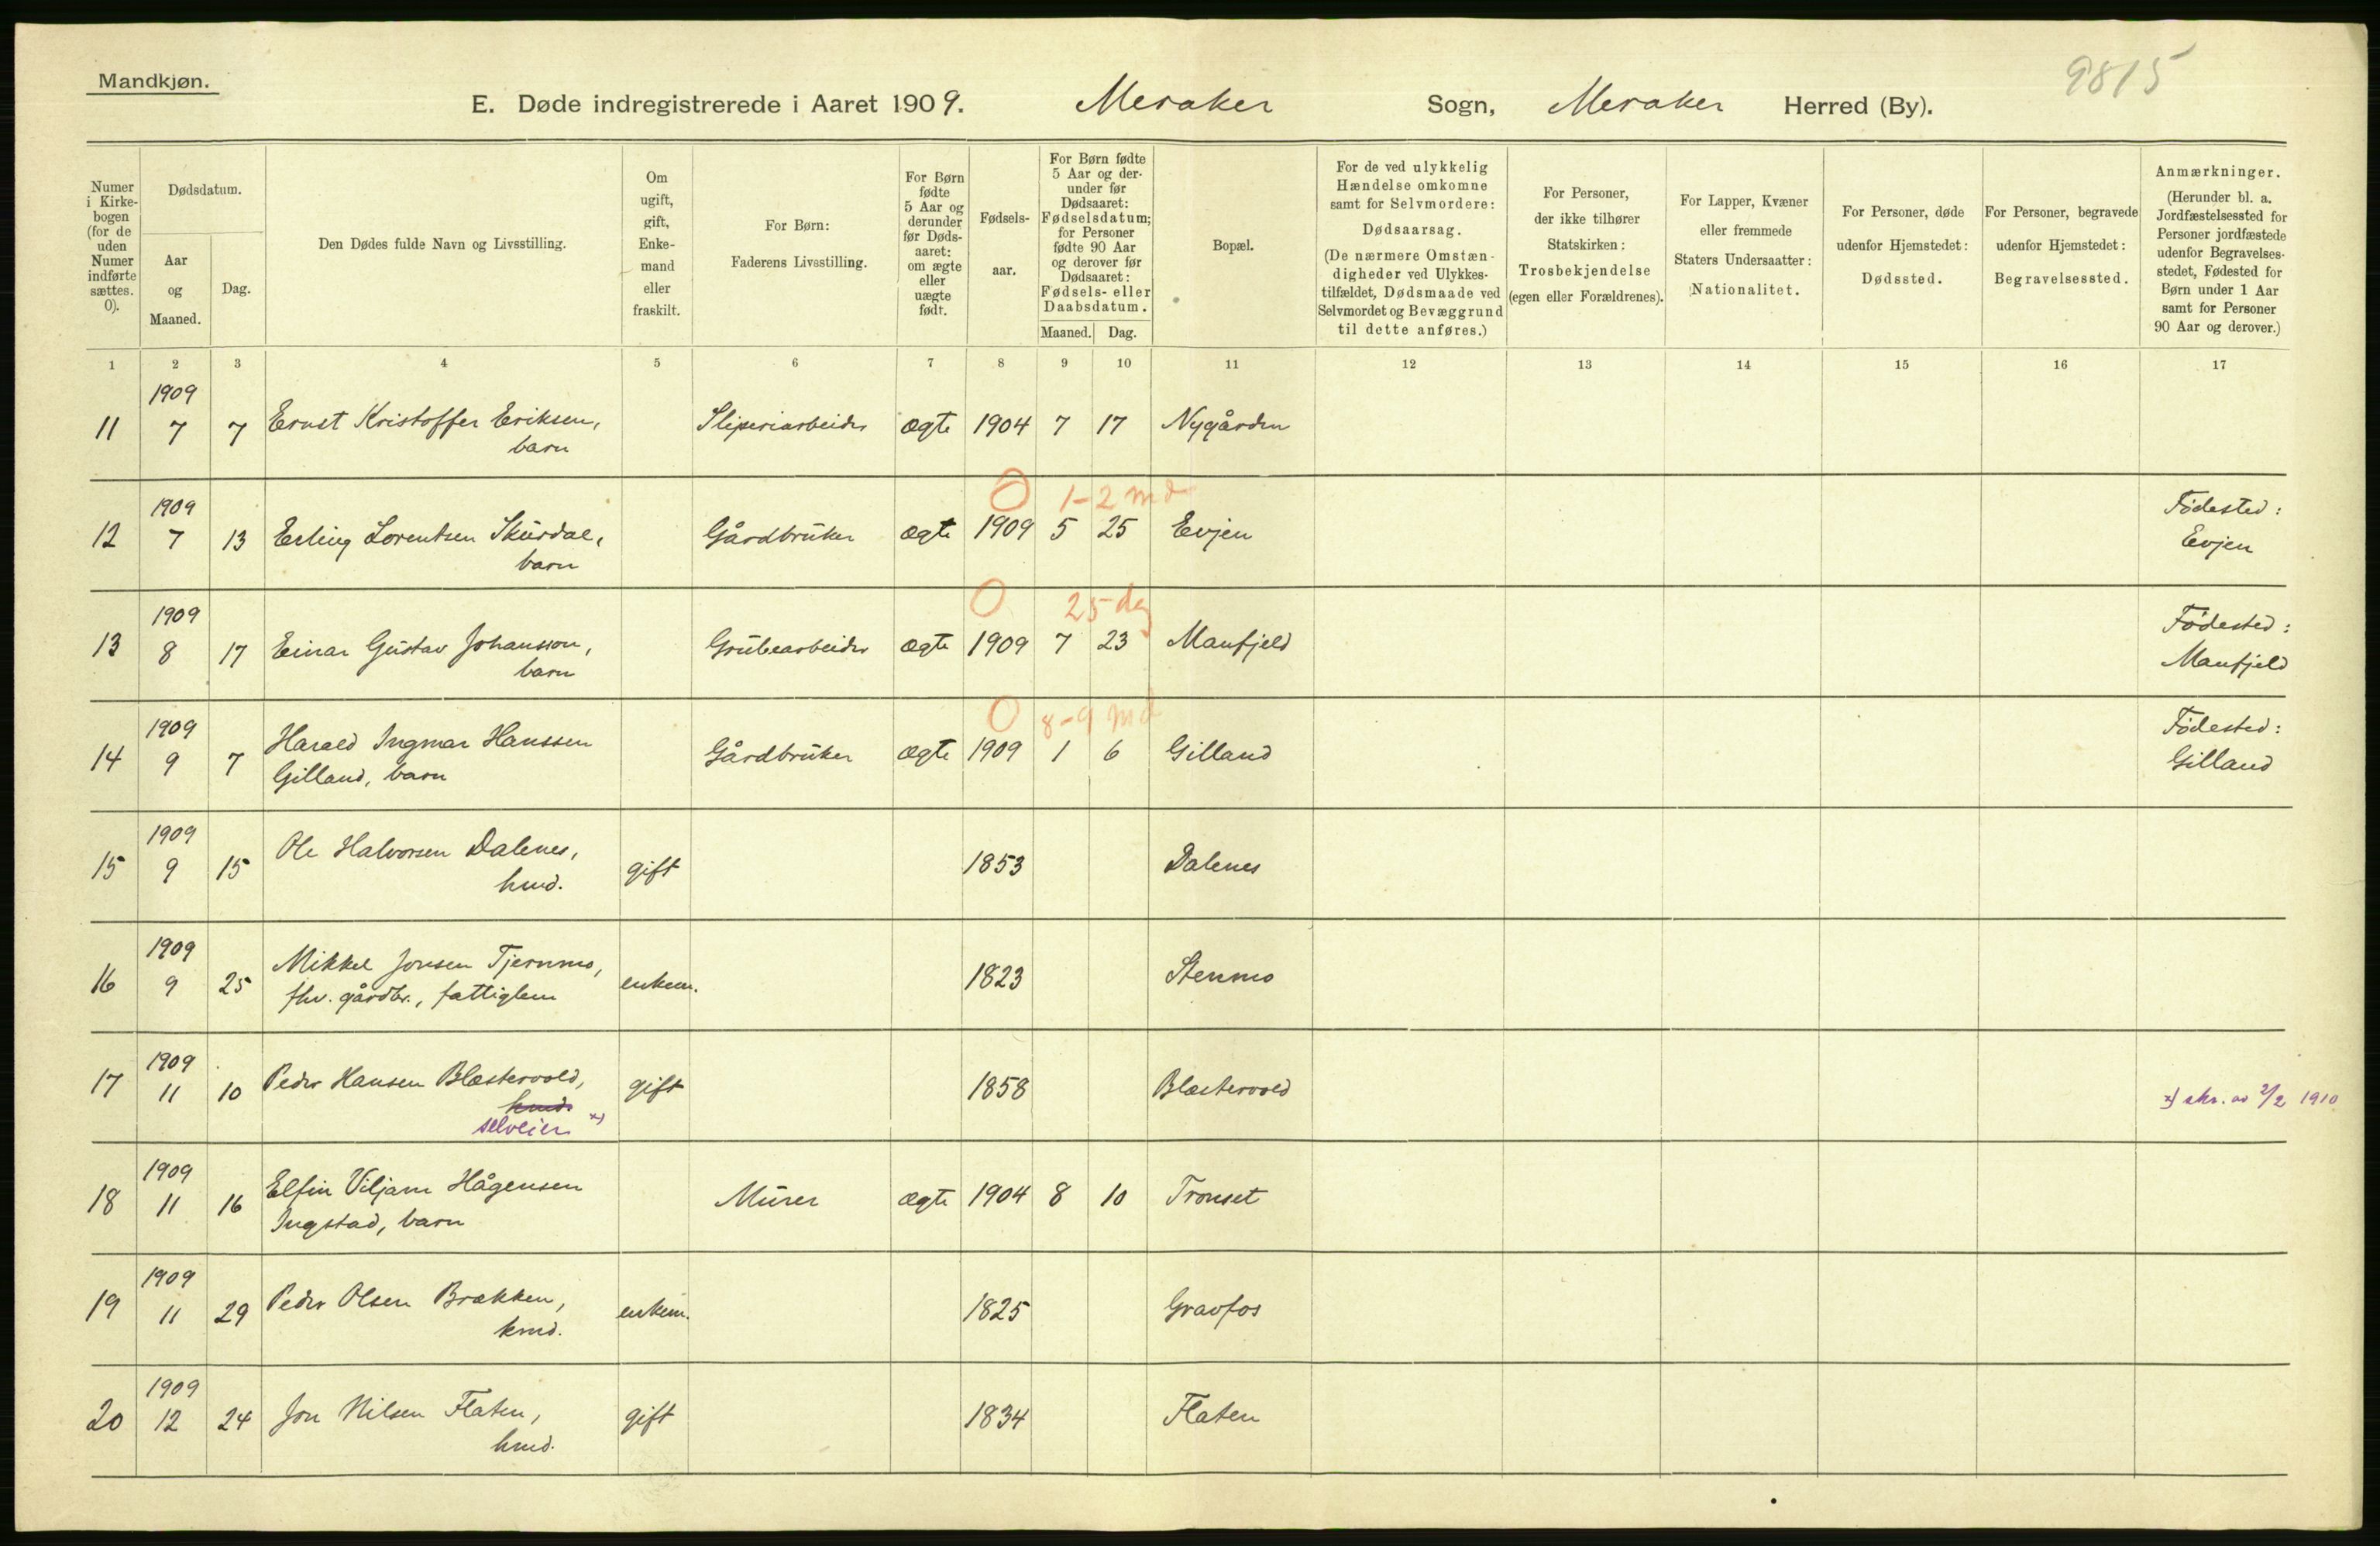 Mandkjøn.
E. Døde indregistrerede i Aaret 1909. Meraker Sogn, Meraker Herred (By).
9815
Numer
i Kirke-
bogen
(for de
uden
Numer
indførte
sættes.
0).
Dødsdatum.
Aar
og
Maaned.
Dag.
Den Dødes fulde Navn og Livsstilling.
Om
ugift,
gift,
Enke-
mand
eller
fraskilt.
For Børn:
Faderens Livsstilling.
For Børn
fødte
5 Aar og
derunder
før Døds-
aaret:
om ægte
eller
uægte
født.
Fødsels-
aar.
For Børn fødte
5 Aar og der-
under før
Dødsaaret:
Fødselsdatum;
for Personer
fødte 90 Aar
og derover før
Dødsaaret:
Fødsels- eller
Daabsdatum.
Maaned. Dag.
Bopæl.
For de ved ulykkelig
Hændelse omkomne
samt for Selvmordere:
Dødsaarsag.
(De nærmere Omstæn-
digheder ved Ulykkes-
tilfældet, Dødsmaade ved
Selvmordet og Bevæggrund
til dette anføres.)
For Personer,
der ikke tilhører
Statskirken:
Trosbekjendelse
(egen eller Forældrenes).
For Lapper, Kvæner
eller fremmede
Staters Undersaatter:
Nationalitet.
For Personer, døde
udenfor Hjemstedet:
Dødssted.
For Personer, begravede
udenfor Hjemstedet:
Begravelsessted.
Anmærkninger.
(Herunder bl. a.
Jordfæstelsessted for
Personer jordfæstede
udenfor Begravelses-
stedet, Fødested for
Børn under 1 Aar
samt for Personer
90 Aar og derover.)
1 2 3 4 5 6 7 8 9 10 11 12 13 14 15 16 17
1909
11 7 7 Ernst Kristoffer Eriksen, Sliperiarbeider ægte 1904 7 17 Nygården
barn
0 1-2 md
1909 Födested:
12 7 13 Erling Lorentsen Skurdal, Gårdbruker ægte 1909 5 25 Evjen Evjen
barn
0 25 dg
1909 Födested:
13 8 17 Einar Gustav Johansson, Grubearbeider ægte 1909 7 23 Manfjeld Manfjeld
barn
0 8-9 md
1909 Harald Ingmar Hanssen Födested:
14 9 7 Gilland, barn Gårdbruker ægte 1909 1 6 Gilland Gilland
1909
15 9 15 Ole Halvorsen Dalenes, gift 1853 Dalenes
hmd.
1909
16 9 25 Mikkel Jonsen Tjernmo, enkem. 1823 Stenmo
fhv. gårdbr., fattiglem
1909
17 11 10 Peder Hansen Blæstervold, gift 1858 Blæstervold
hmd.
selveier x) x) skr. av 2/2 1910
1909
18 11 16 Elfin Viljam Hågensen Murer ægte 1904 8 10 Tronset
Ingstad, barn
1909
19 11 29 Peder Olsen Brækken, enkem. 1825 Gravfos
kmd.
1909
20 12 24 Jon Nilsen Flaten, gift 1834 Flaten
hmd.